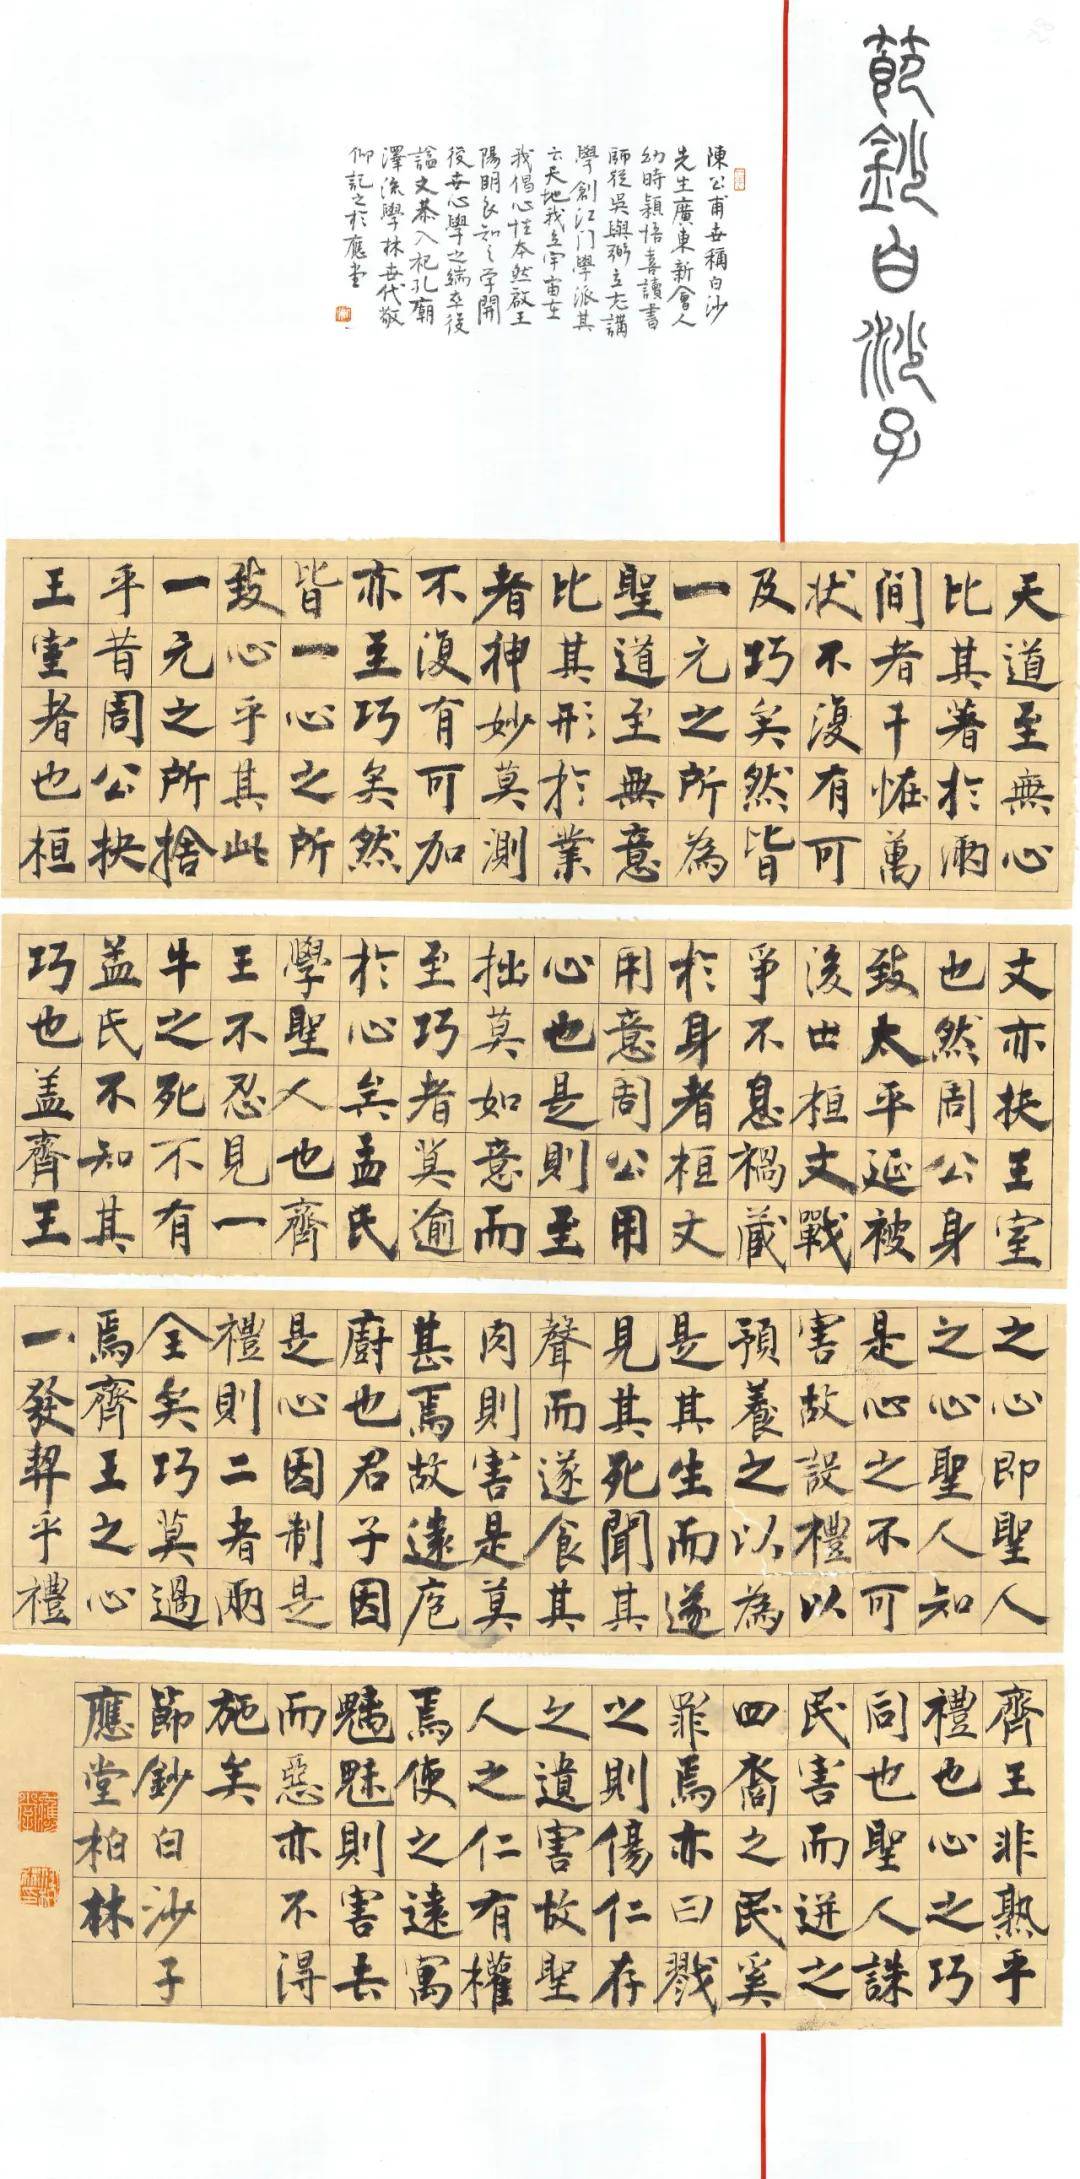 節鈔白沙子
陳公甫世稱白沙
先生廣東新會人
幼時穎悟喜讀書
師從吳與弼立志講
學創江门學派其
云天地我立宇宙在
我倡心性本然啟王
陽明良知之学開
後世心學之端卒後
謚文恭入祀孔廟
澤流學林世代敬
仰記之於應堂
天道至無心
比其著於兩
間者千怪萬
狀不復有可
及巧矣然皆
一元之所為
聖道至無意
比其形於業
者神妙莫測
不復有可加
亦至巧矣然
皆一心之所
致心乎其此
一元之所捨
乎昔周公扶
王室者也桓
文亦扶王室
也然周公身
致太平延被
後世桓文戰
爭不息禍藏
於身者桓文
用意周公用
心也是則至
拙莫如意而
至巧者莫逾
於心矣孟氏
學聖人也齊
王不忍見一
牛之死不有
孟氏不知其
巧也盖齊王
之心即聖人
之心聖人知
是心之不可
害故設禮以
預養之以為
是其生而遂
見其死聞其
聲而遂食其
肉則害是莫
甚焉故遠庖
廚也君子因
是心因制是
禮則二者兩
全矣巧莫過
焉齊王之心
一發契乎禮
齊王非熟乎
禮也心之巧
同也聖人誅
民害而迸之
四裔之民奚
罪焉亦曰戮
之則傷仁存
之遺害故聖
人之仁有權
焉使之遠寓
魑魅則害去
而惡亦不得
施矣
節鈔白沙子
應堂柏林